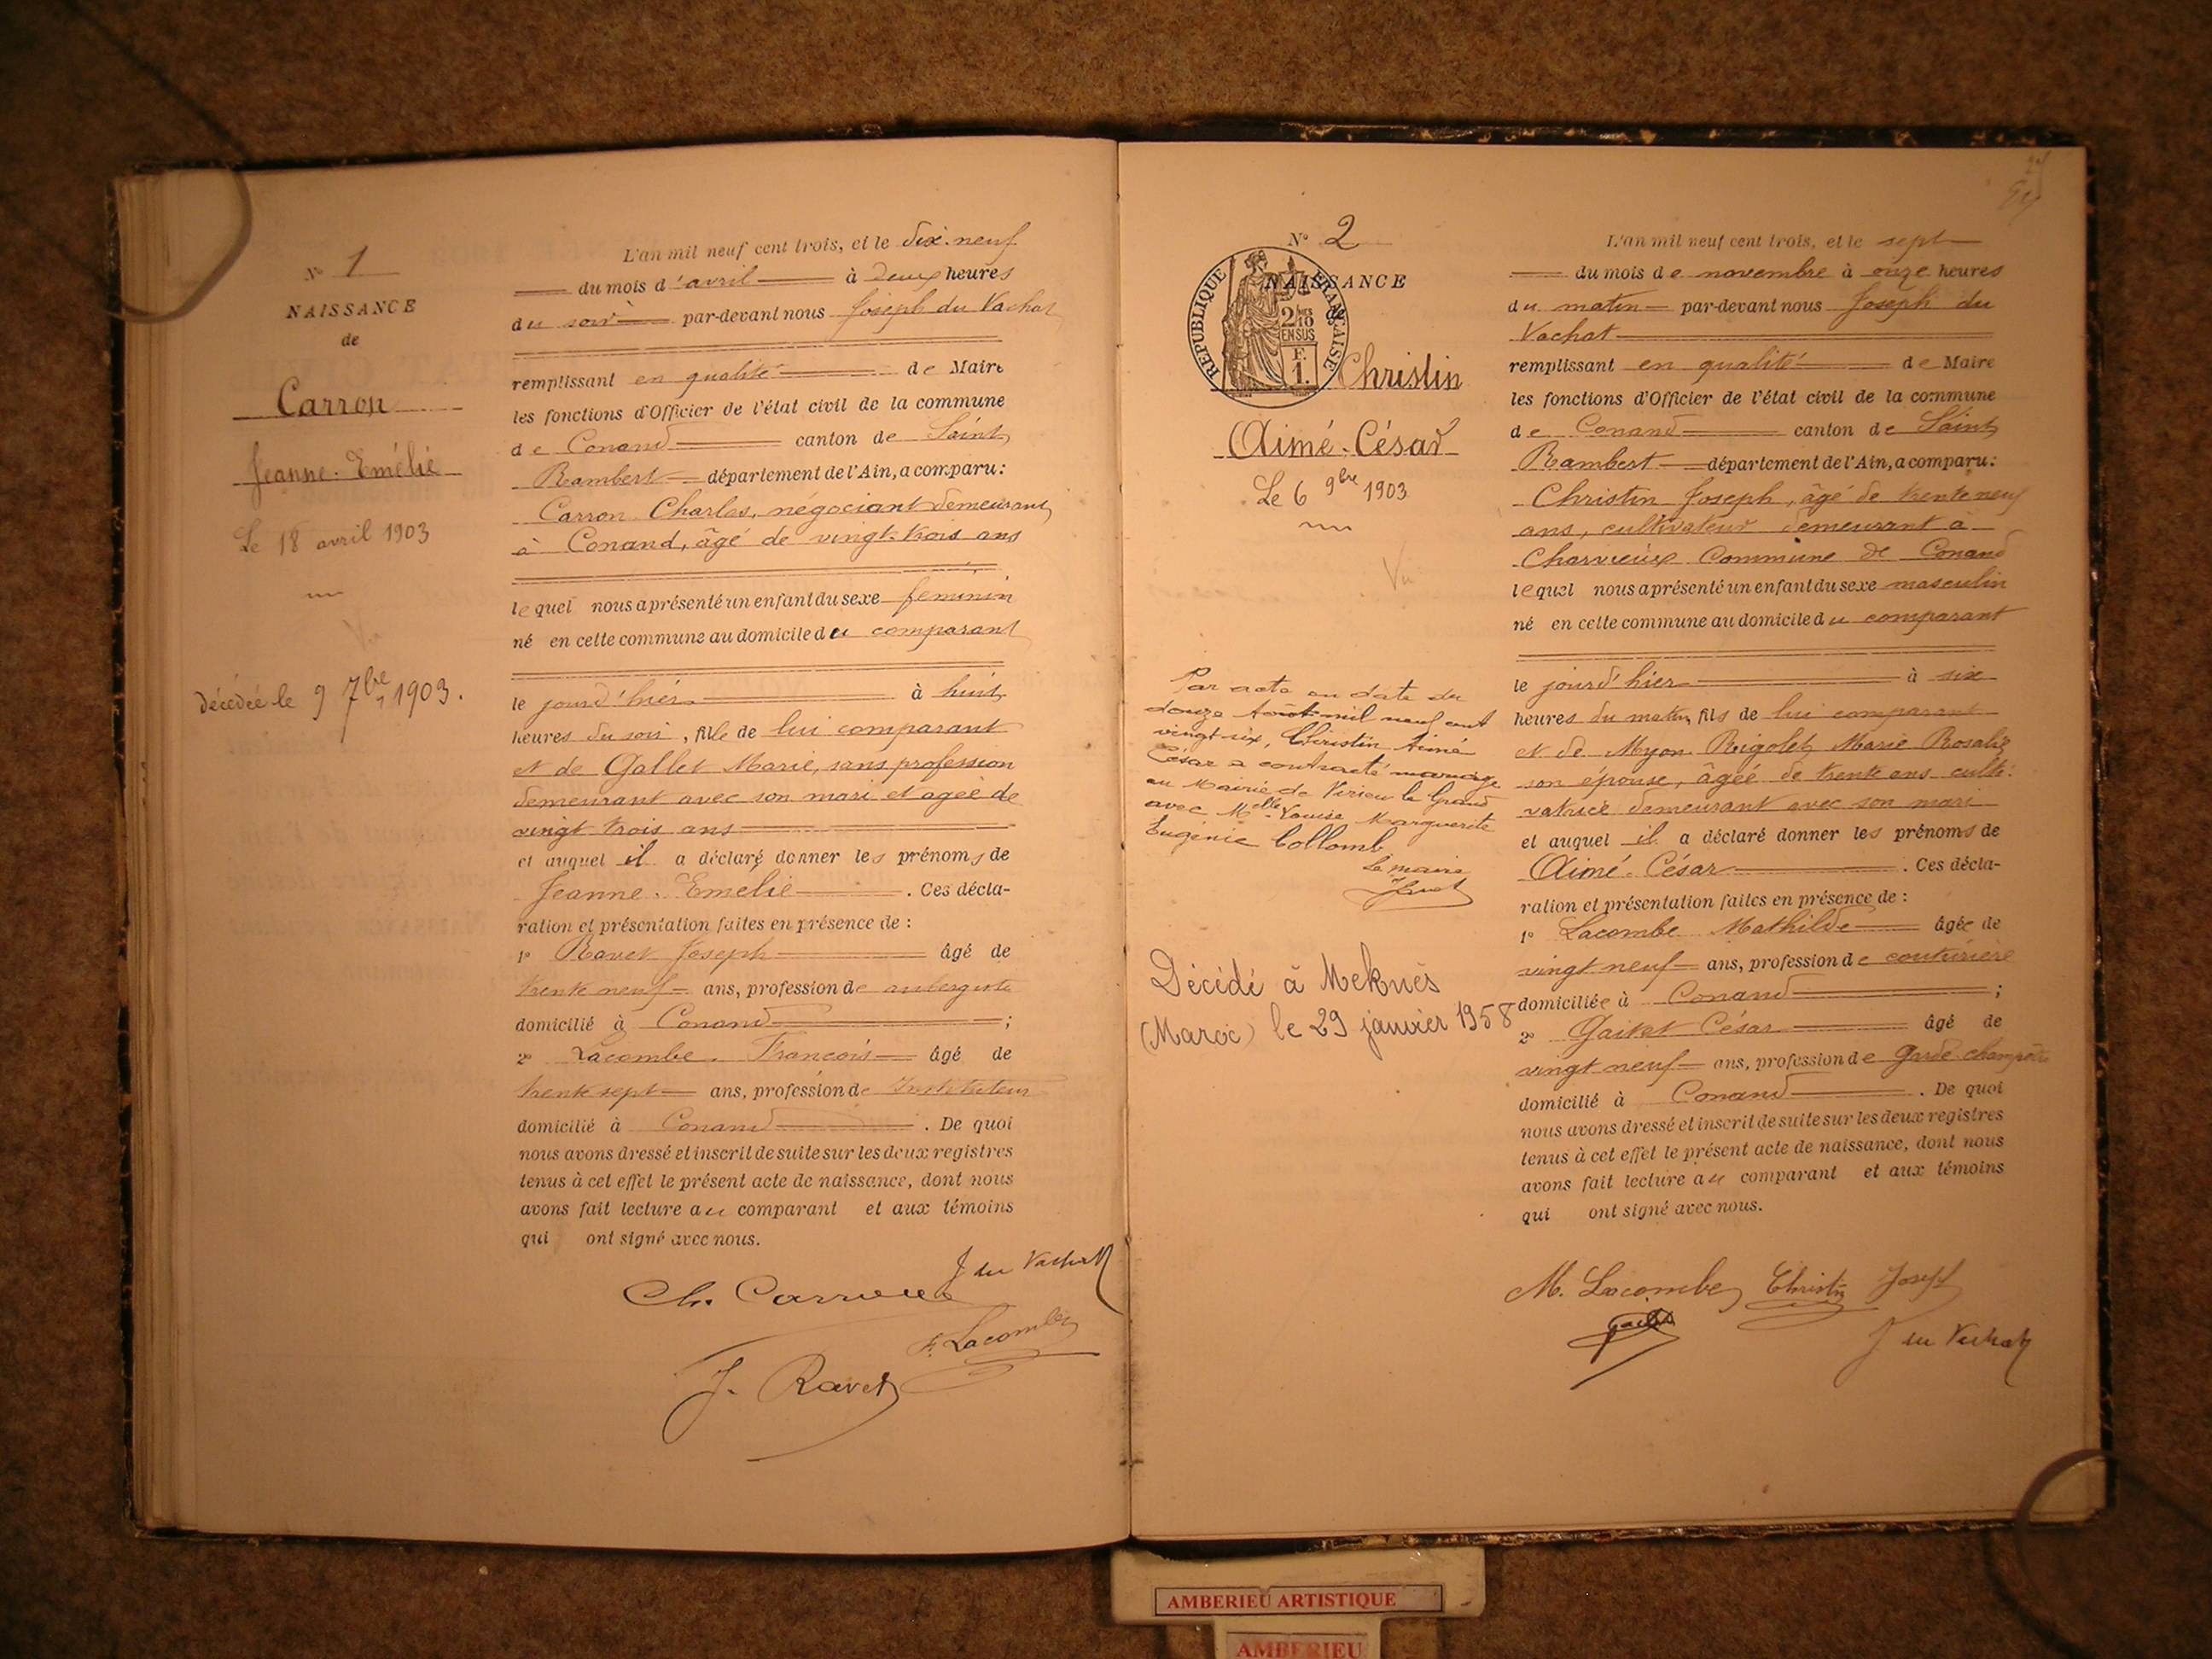 N° 1
NAISSANCE
de
Carron
Jeanne-Emélie
Le 18 avril 1903
décédée le 9 7bre 1903.
L'an mil neuf cent trois, et le dix-neuf
du mois d'avril à deux heures
du soir par-devant nous Joseph du Vachat
remplissant en qualité de Maire
les fonctions d'Officier de l'état civil de la commune
de Conand canton de Saint
Rambert département de l'Ain, a comparu:
Carron Charles, négociant demeurant
à Conand, âgé de vingt-trois ans
lequel nous a présenté un enfant du sexe féminin
né en cette commune au domicile du comparant
le jour d'hier à huit
heures du soir, fille de lui comparant
et de Gallet Marie, sans profession
demeurant avec son mari et agée de
vingt trois ans
et auquel il a déclaré donner les prénoms de
Jeanne-Emelie. Ces décla-
ration et présentation faites en présence de :
1° Ravet Joseph âgé de
trente neuf ans, profession de aubergiste
domicilié à Conand ;
2° Lacombe François âgé de
trente sept ans, profession de Instituteur
domicilié à Conand. De quoi
nous avons dressé et inscrit de suite sur les deux registres
tenus à cet effet le présent acte de naissance, dont nous
avons fait lecture au comparant et aux témoins
qui ont signé avec nous.
J du Vachat
Ch. Carron
F. Lacombe
J. Ravet
N° 2
NAISSANCE
RÉPUBLIQUE FRANÇAISE
2/10
EN SUS
F.
1.
Christin
Aimé-César
Le 6 9bre 1903
Vu
Par acte en date du
douze Août mil neuf cent
vingt six, Christin Aimé
César a contracté mariage
en Mairie de Virieu le Grand
avec Melle Louise Marguerite
Eugénie Collomb
Le maire
Décédé à Meknès
(Maroc) le 29 janvier 1958
L'an mil neuf cent trois, et le sept
du mois de novembre à onze heures
du matin par-devant nous Joseph du
Vachat
remplissant en qualité de Maire
les fonctions d'Officier de l'état civil de la commune
de Conand canton de Saint
Rambert département de l'Ain, a comparu:
Christin Joseph, âgé de trente neuf
ans, cultivateur demeurant à
Charvieux Commune de Conand
lequel nous a présenté un enfant du sexe masculin
né en cette commune au domicile du comparant
le jour d'hier à six
heures du matin, fils de lui comparant
et de Myon-Rigolet Marie Rosalie
son épouse, âgée de trente ans culti-
vatrice demeurant avec son mari
et auquel il a déclaré donner les prénoms de
Aimé-César. Ces décla-
ration et présentation faites en présence de :
1° Lacombe Mathilde âgée de
vingt neuf ans, profession de couturière
domiciliée à Conand ;
2° Gaitet César âgé de
vingt neuf ans, profession de garde-champêtre
domicilié à Conand. De quoi
nous avons dressé et inscrit de suite sur les deux registres
tenus à cet effet le présent acte de naissance, dont nous
avons fait lecture au comparant et aux témoins
qui ont signé avec nous.
M. Lacombe Christin Joseph
J du Vachat
AMBERIEU ARTISTIQUE
AMBERIEU